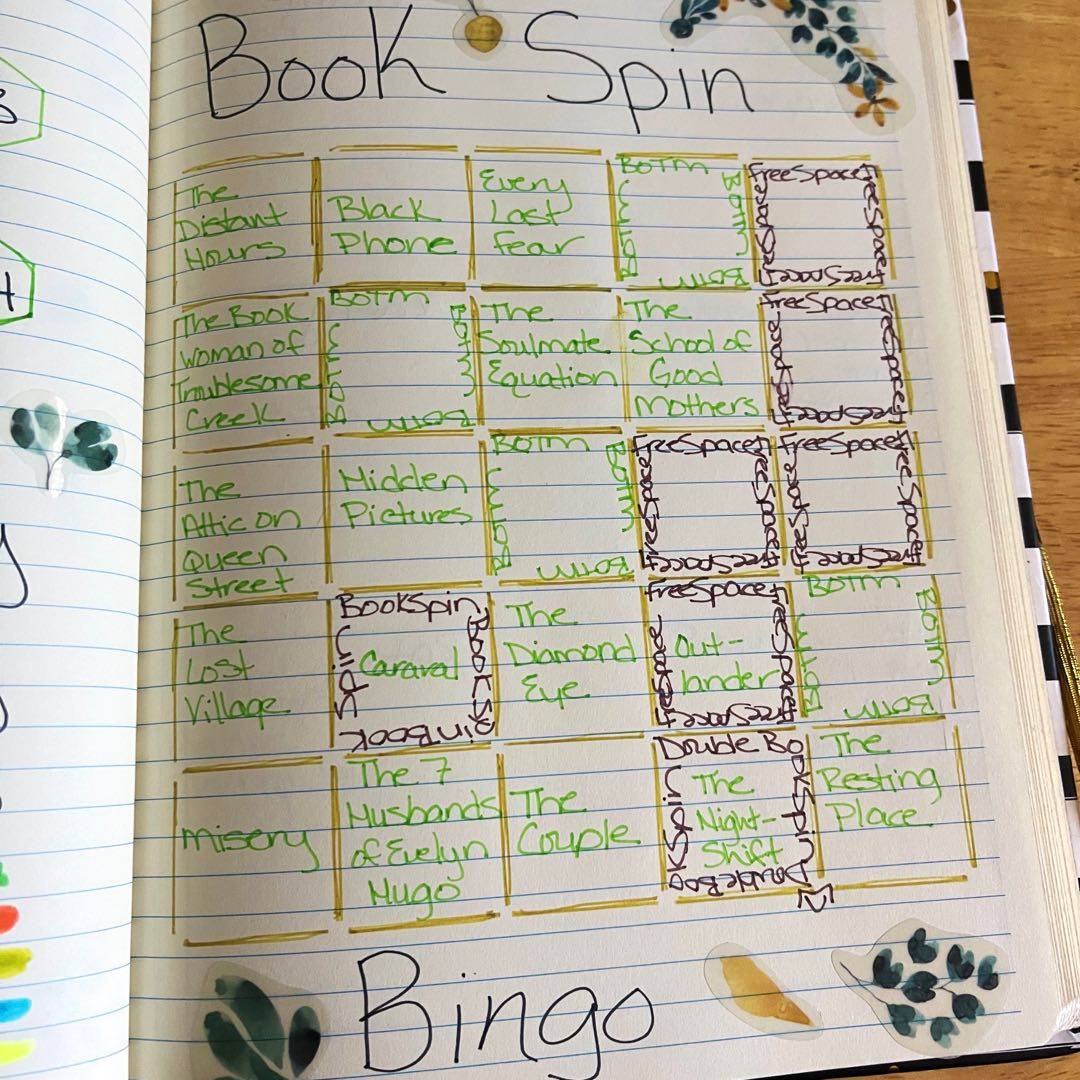 Book Spin
The
Distant
Hours
Black
Phone
Every
Last
Fear
BOTM
BOTM
BOTM
BOTM
Free Space
Free Space
Free Space
Free Space
The Book
Woman of
Troublesome
Creek
BOTM
BOTM
BOTM
BOTM
The
Soulmate
Equation
The
School of
Good
Mothers
Free Space
Free Space
Free Space
Free Space
The
Attic on
Queen
Street
Hidden
Pictures
BOTM
BOTM
BOTM
BOTM
Free Space
Free Space
Free Space
Free Space
Free Space
Free Space
Free Space
Free Space
The
Lost
Village
BookSpin
BookSpin
BookSpin
Caraval
The
Diamond
Eye
Free Space
Free Space
Free Space
Free Space
Out-
lander
BOTM
BOTM
BOTM
BOTM
Misery
The 7
Husbands
of Evelyn
Hugo
The
Couple
Double BookSpin
Double BookSpin
The
Night-
Shift
The
Resting
Place
Bingo